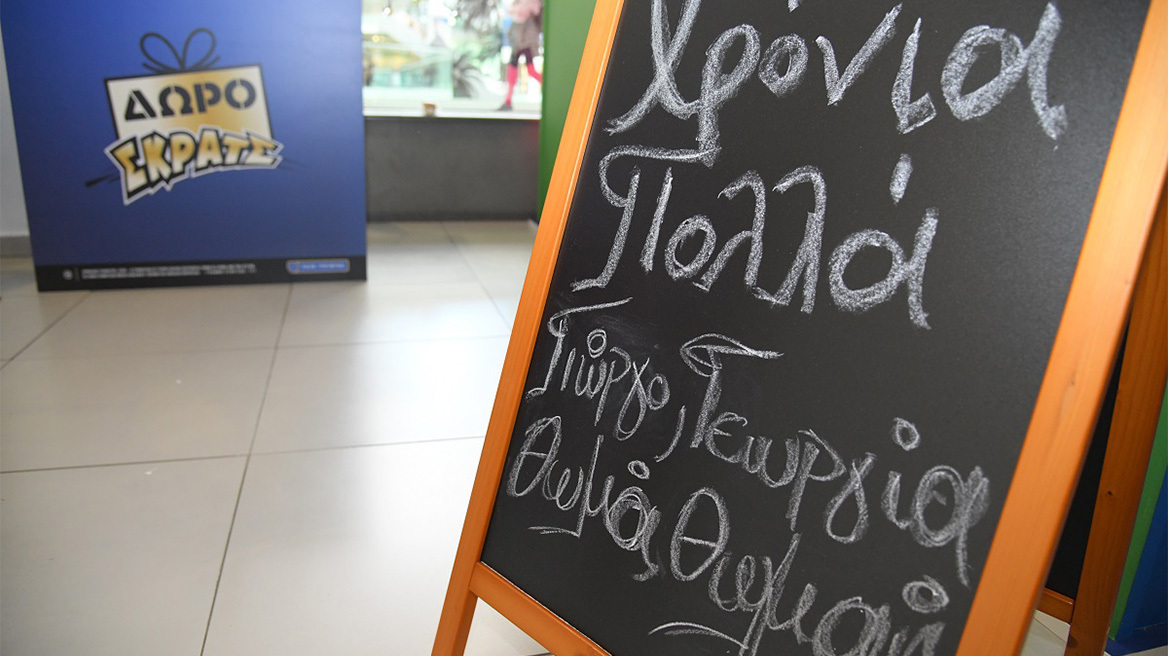 ΔΩΡΟ
ΣΚΡΑΤΣ
Χρόνια
Πολλά
Γιώργο, Γεωργία
Θωμάς Θωμαή